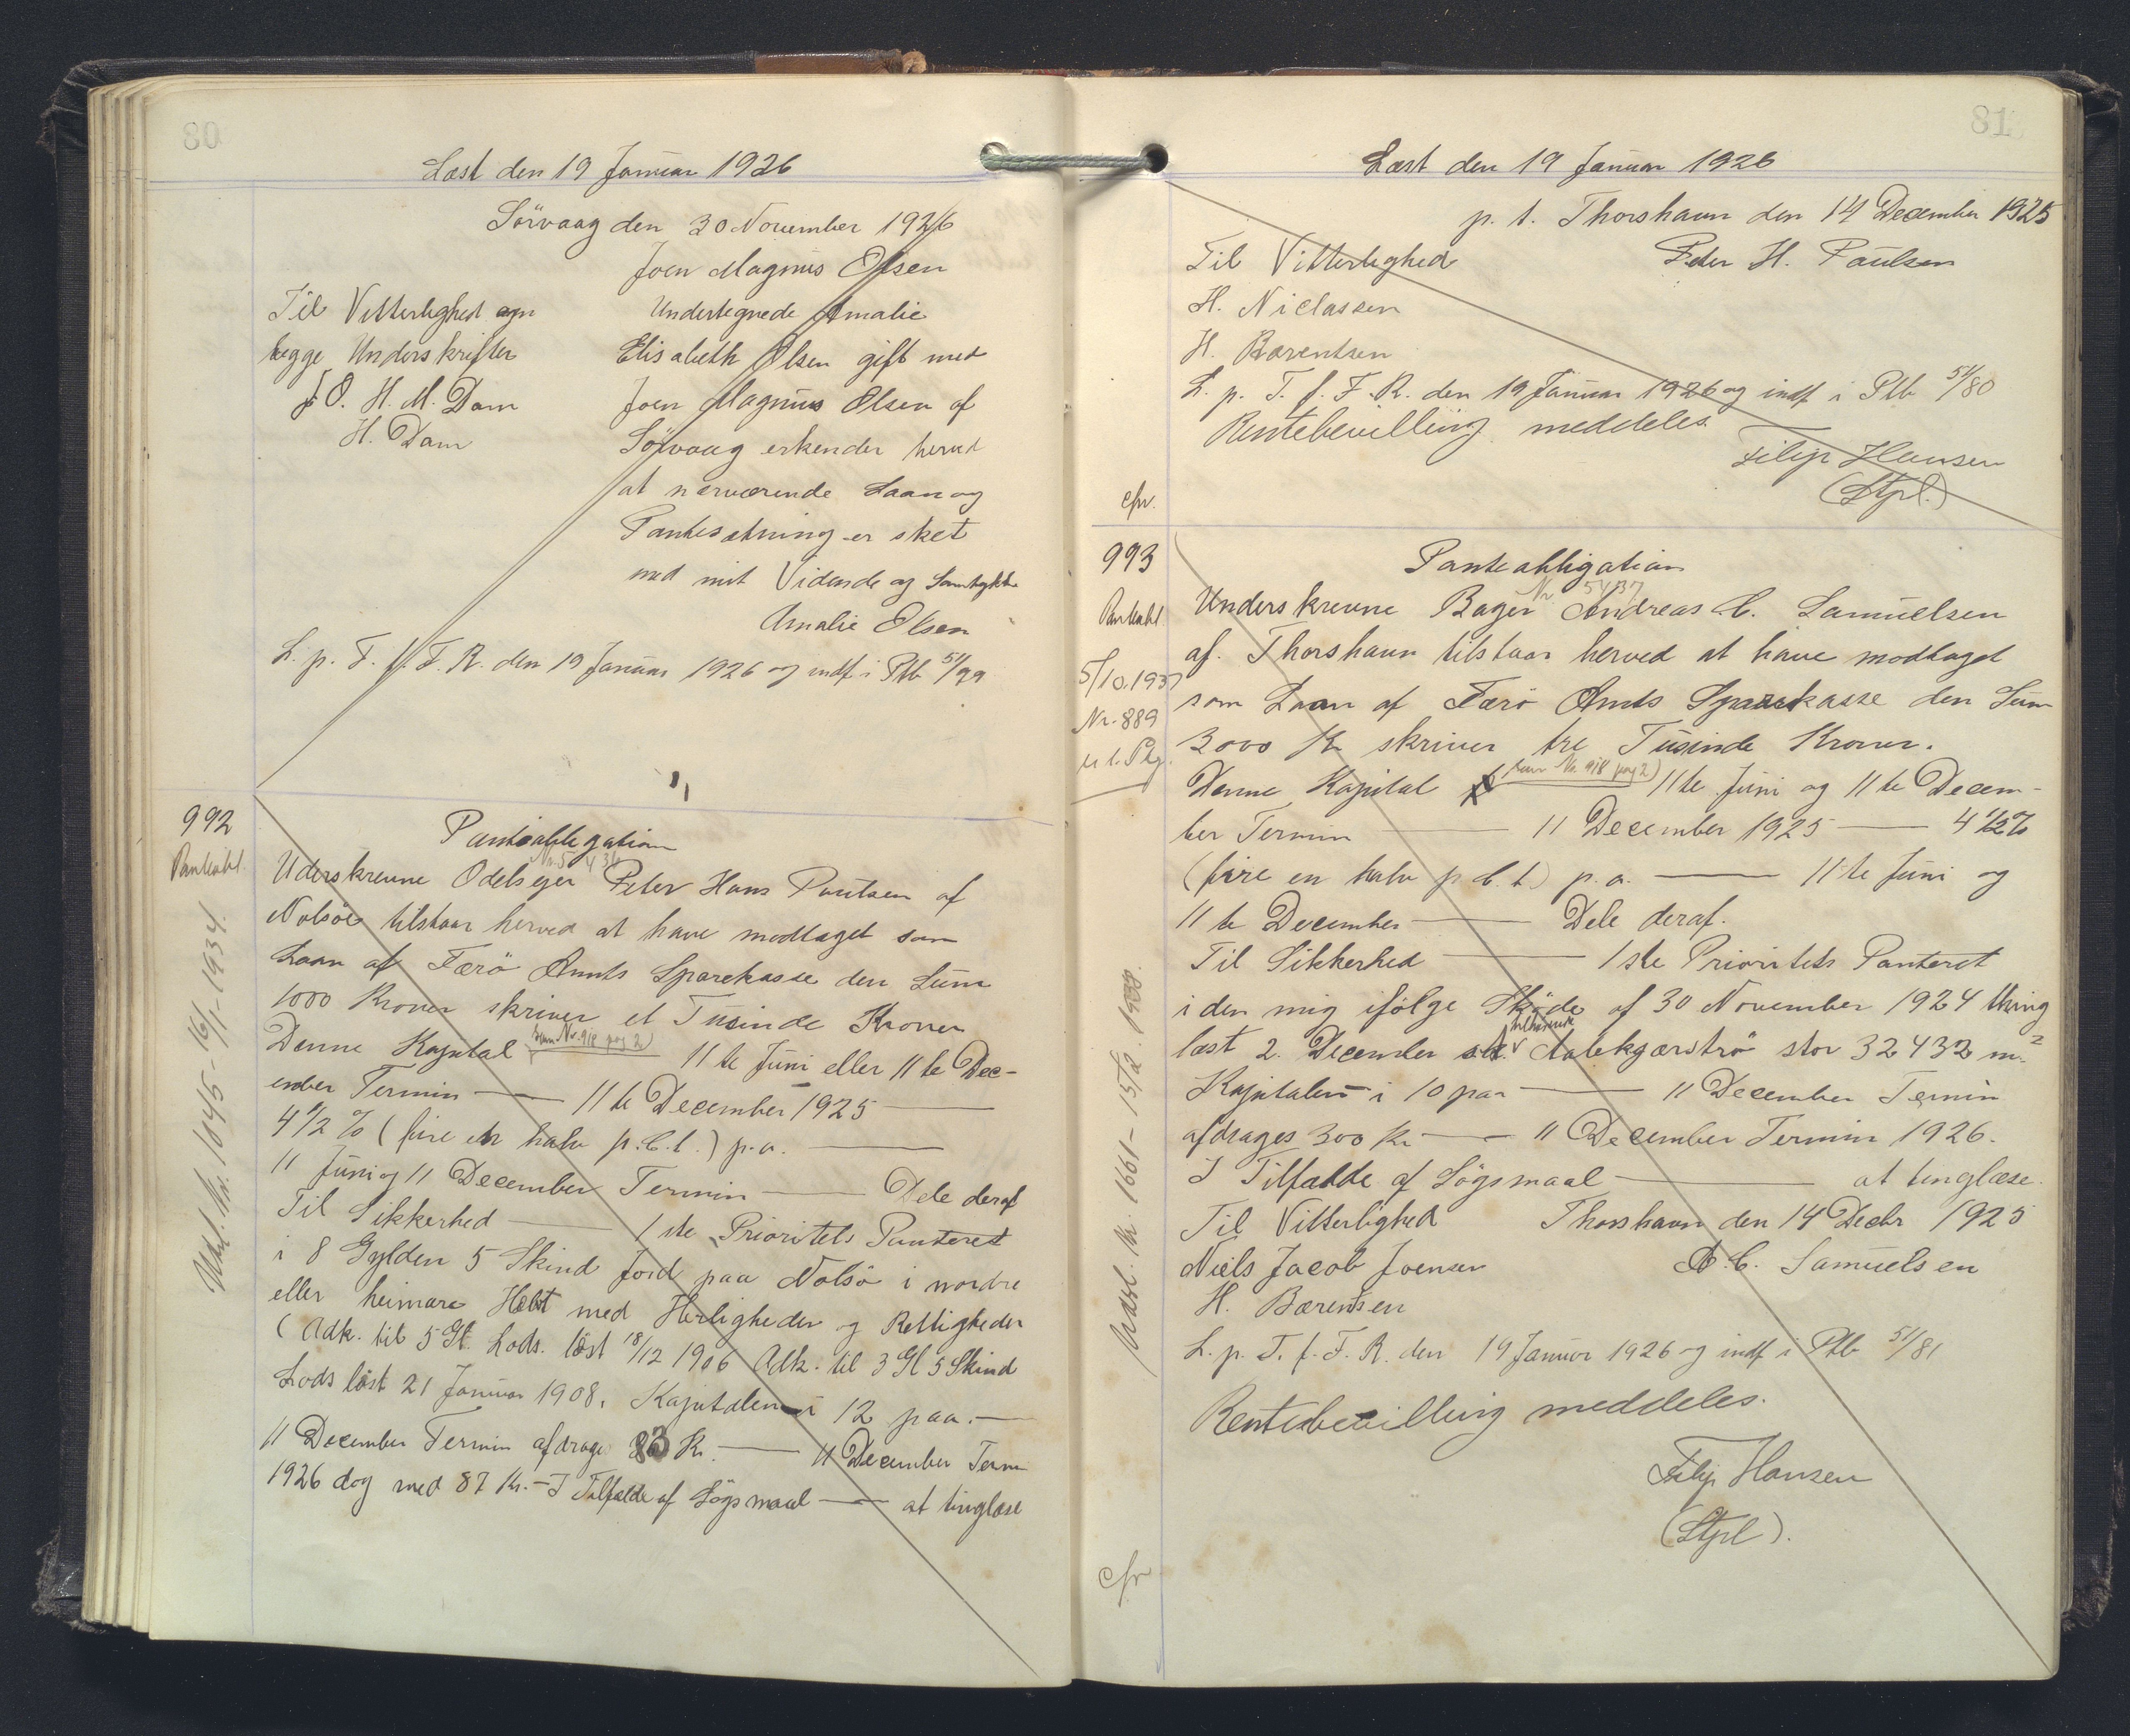 80
Læst den 19 Januar 1926
Sörvaag den 30 November 1926
Joen Magnus Olsen
Til Vitterlighed om
begge Underskrifter
J. O. H. M. Dam
H. Dam
Undertegnede Amalie
Elisabeth Olsen gift med
Joen Magnus Olsen af
Sörvaag erkender herved
at nærværende Laan og
Pantesætning er sket
med mit Vidende og Samtykke
Amalie Olsen
L. p. T. f. F. R. den 19 Januar 1926 og indf. i Ptb 51/79
992
Panteobl.
Udsl. Nr. 1045 - 16/1-1934.
Panteobligation
Nr. 5436
Uderskrevne Odelsejer Peter Hans Poulsen af
Nolsöe tilstaar herved at have modtaget som
Laan af Færö Amts Sparekasse den Sum
1000 Kroner skriver et Tusinde Kroner
Denne Kapital (som Nr. 918 pag 2) 11te Juni eller 11te Dec-
ember Termin — 11te December 1925 —
4 1/2 % (fire en halv p.C.t.) p.a. —
11 Juni og 11 December Termin — Dele deraf
Til Sikkerhed — 1ste Prioritets Panteret
i 8 Gylden 5 Skind Jord paa Nolsö i nordre
eller heimare Helvt med Herligheder og Rettigheder
(Adk. til 5 Gl. Lods. læst 18/12 1906 Adk. til 3 Gl 5 Skind
Lods læst 21 Januar 1908. Kapitalen i 12 paa. —
11 December Termin afdrages 83 Kr. — 11 December Term
1926 dog med 87 Kr. — I Tilfælde af Sögsmaal — at tinglæse
81
Læst den 19 Januar 1926
p. t. Thorshavn den 14 December 1925
Til Vitterlighed Peter H. Poulsen
H. Niclassen
H. Bærentsen
L. p. T. f. F. R. den 19 Januar 1926 og indf i Ptb 51/80
Rentebevilling meddeles.
Filip Hansen
(Stpl.)
cfr.
993
Panteobl.
5/10.1937
Nr. 889
Panteobligation
Nr 5437
Underskrevne Bager Andreas C. Samuelsen
af Thorshavn tilstaar herved at have modtaget
som Laan af Færö Amts Sparekasse den Sum
3000 Kr skriver tre Tusinde Kroner.
Denne Kapital (som Nr. 918 pag 2) 11te Juni og 11te Decem-
ber Termin — 11 December 1925 — 4 1/2 %
(fire en halv p.C.t.) p.a. — 11te Juni og
11te December — Dele deraf.
Til Sikkerhed — 1ste Prioritets Panteret
i den mig ifölge Sköde af 30 November 1924 thing
læst 2. December s.A. tilhörende stor 32432 m2
Kapitalen i 10 paa — 11 December Termin
afdrages 300 Kr — 11 December Termin 1926.
I Tilfælde af Sögsmaal — at tinglæse.
Til Vitterlighed Thorshavn den 14 Decbr 1925
Niels Jacob Joensen A. C. Samuelsen
H. Bærentsen
L. p. T. f. F. R. den 19 Januar 1926 og indf i Ptb 51/81
Rentebevilling meddeles.
Filip Hansen
(Stpl).
cfr